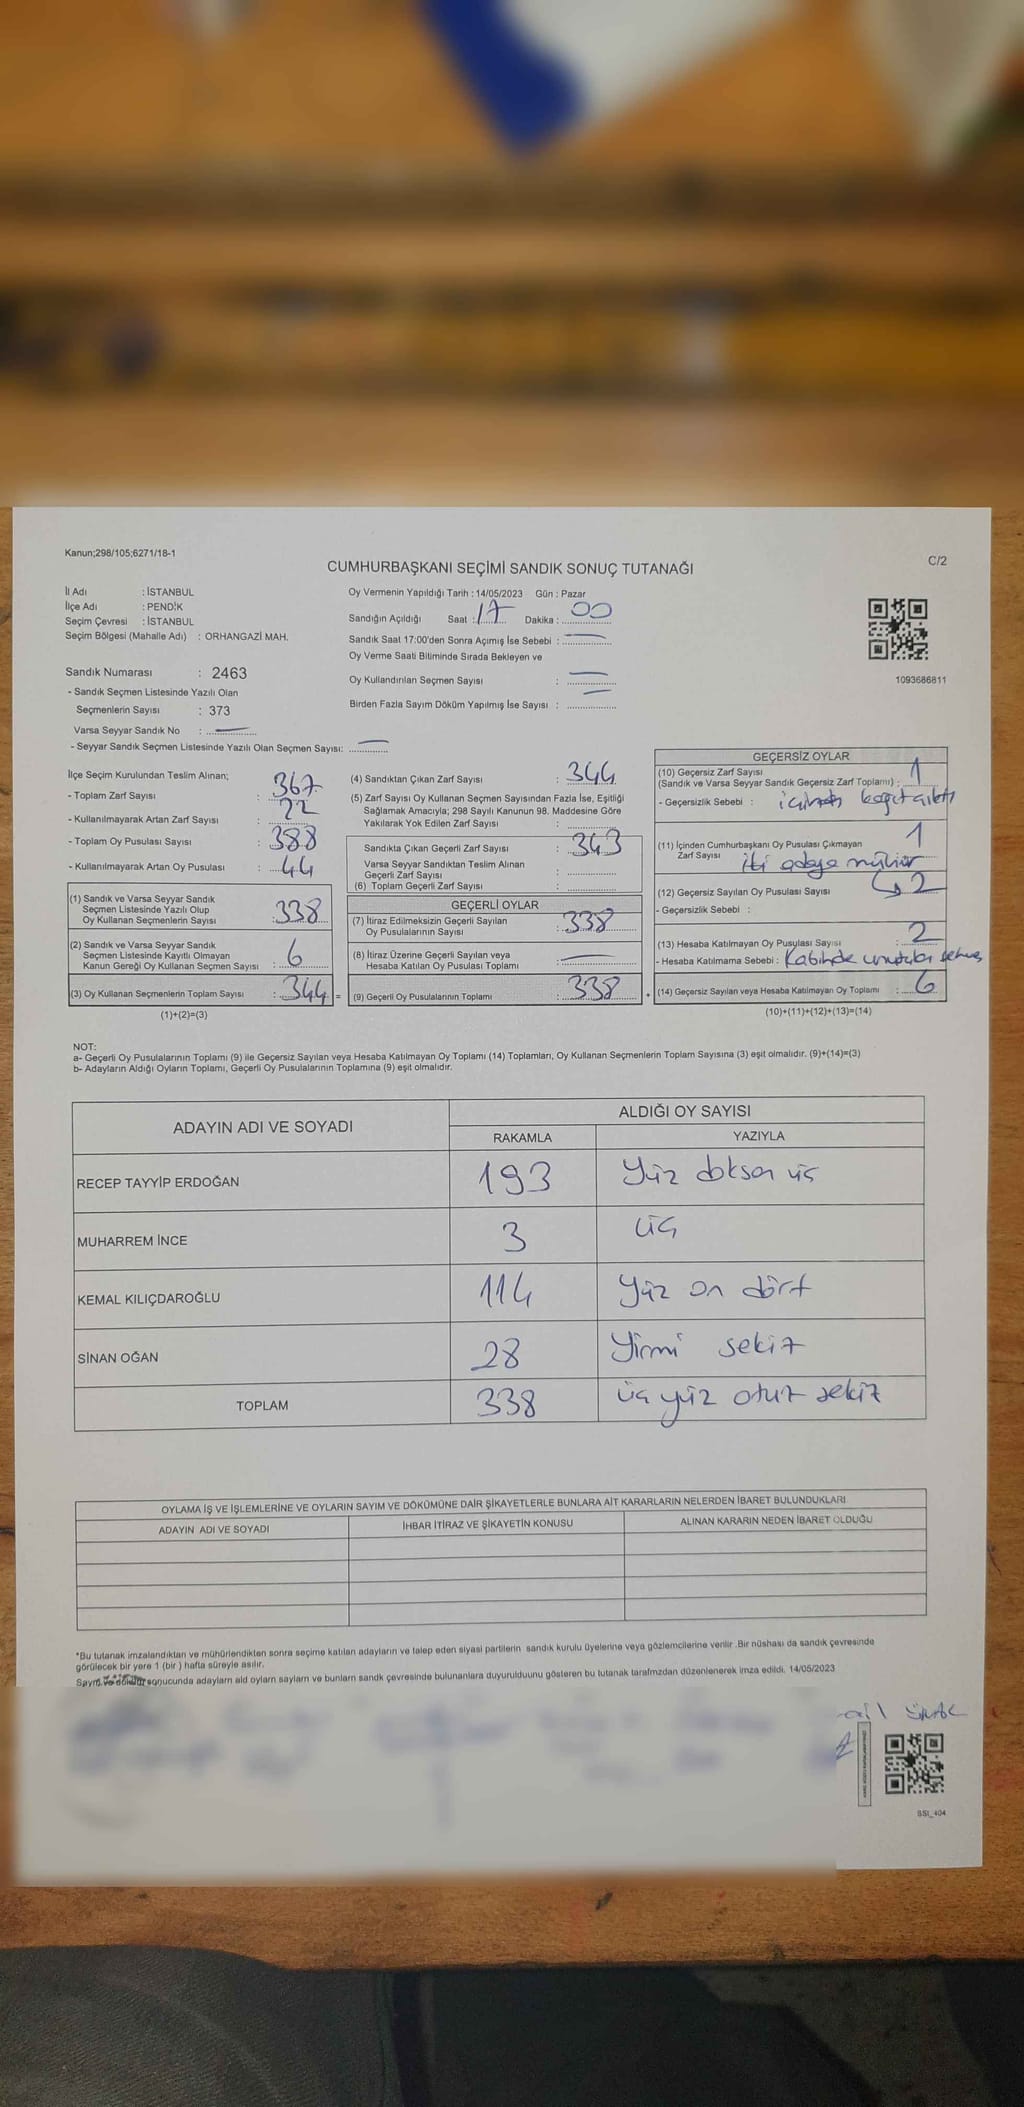 Kanun;298/105;6271/18-1
C/2
CUMHURBAŞKANI SEÇİMİ SANDIK SONUÇ TUTANAĞI
İl Adı : İSTANBUL
İlçe Adı : PENDİK
Seçim Çevresi : İSTANBUL
Seçim Bölgesi (Mahalle Adı) : ORHANGAZİ MAH.
Sandık Numarası : 2463
- Sandık Seçmen Listesinde Yazılı Olan
Seçmenlerin Sayısı : 373
Varsa Seyyar Sandık No :
- Seyyar Sandık Seçmen Listesinde Yazılı Olan Seçmen Sayısı:
Oy Vermenin Yapıldığı Tarih : 14/05/2023 Gün : Pazar
Sandığın Açıldığı Saat : 17 Dakika : 00
Sandık Saat 17:00'den Sonra Açımış İse Sebebi :
Oy Verme Saati Bitiminde Sırada Bekleyen ve
Oy Kullandırılan Seçmen Sayısı :
Birden Fazla Sayım Döküm Yapılmış İse Sayısı :
1093686811
İlçe Seçim Kurulundan Teslim Alınan;
- Toplam Zarf Sayısı : 367
- Kullanılmayarak Artan Zarf Sayısı : 22
- Toplam Oy Pusulası Sayısı : 388
- Kullanılmayarak Artan Oy Pusulası : 44
(1) Sandık ve Varsa Seyyar Sandık
Seçmen Listesinde Yazılı Olup
Oy Kullanan Seçmenlerin Sayısı : 338
(2) Sandık ve Varsa Seyyar Sandık
Seçmen Listesinde Kayıtlı Olmayan
Kanun Gereği Oy Kullanan Seçmen Sayısı : 6
(3) Oy Kullanan Seçmenlerin Toplam Sayısı : 344 =
(1)+(2)=(3)
(4) Sandıktan Çıkan Zarf Sayısı : 344
(5) Zarf Sayısı Oy Kullanan Seçmen Sayısından Fazla İse, Eşitliği
Sağlamak Amacıyla; 298 Sayılı Kanunun 98. Maddesine Göre
Yakılarak Yok Edilen Zarf Sayısı :
Sandıkta Çıkan Geçerli Zarf Sayısı : 343
Varsa Seyyar Sandıktan Teslim Alınan
Geçerli Zarf Sayısı :
(6) Toplam Geçerli Zarf Sayısı :
GEÇERLİ OYLAR
(7) İtiraz Edilmeksizin Geçerli Sayılan
Oy Pusulalarının Sayısı : 338
(8) İtiraz Üzerine Geçerli Sayılan veya
Hesaba Katılan Oy Pusulası Toplamı :
(9) Geçerli Oy Pusulalarının Toplamı : 338 +
GEÇERSİZ OYLAR
(10) Geçersiz Zarf Sayısı 1
(Sandık ve Varsa Seyyar Sandık Geçersiz Zarf Toplamı) :
- Geçersizlik Sebebi : içinden kağıt çıktı
(11) İçinden Cumhurbaşkanı Oy Pusulası Çıkmayan 1
Zarf Sayısı iki adaya mühür
(12) Geçersiz Sayılan Oy Pusulası Sayısı 2
- Geçersizlik Sebebi :
(13) Hesaba Katılmayan Oy Pusulası Sayısı : 2
- Hesaba Katılmama Sebebi : Kabinde
(14) Geçersiz Sayılan veya Hesaba Katılmayan Oy Toplamı : 6
(10)+(11)+(12)+(13)=(14)
NOT:
a- Geçerli Oy Pusulalarının Toplamı (9) ile Geçersiz Sayılan veya Hesaba Katılmayan Oy Toplamı (14) Toplamları, Oy Kullanan Seçmenlerin Toplam Sayısına (3) eşit olmalıdır. (9)+(14)=(3)
b- Adayların Aldığı Oyların Toplamı, Geçerli Oy Pusulalarının Toplamına (9) eşit olmalıdır.
ADAYIN ADI VE SOYADI ALDIĞI OY SAYISI
RAKAMLA YAZIYLA
RECEP TAYYİP ERDOĞAN 193 Yüz doksan üç
MUHARREM İNCE 3 üç
KEMAL KILIÇDAROĞLU 114 Yüz on dört
SİNAN OĞAN 28 Yirmi sekiz
TOPLAM 338 üç yüz otuz sekiz
OYLAMA İŞ VE İŞLEMLERİNE VE OYLARIN SAYIM VE DÖKÜMÜNE DAİR ŞİKAYETLERLE BUNLARA AİT KARARLARIN NELERDEN İBARET BULUNDUKLARI
ADAYIN ADI VE SOYADI İHBAR İTİRAZ VE ŞİKAYETİN KONUSU ALINAN KARARIN NEDEN İBARET OLDUĞU
*Bu tutanak imzalandıktan ve mühürlendikten sonra seçime katılan adayların ve talep eden siyasi partilerin sandık kurulu üyelerine veya gözlemcilerine verilir .Bir nüshası da sandık çevresinde
görülecek bir yere 1 (bir ) hafta süreyle asılır.
Sayım ve döküm sonucunda adayların ald oyların sayları ve bunların sandk çevresinde bulunanlara duyurulduunu gösteren bu tutanak tarafmzdan düzenlenerek imza edildi. 14/05/2023
BSI_404